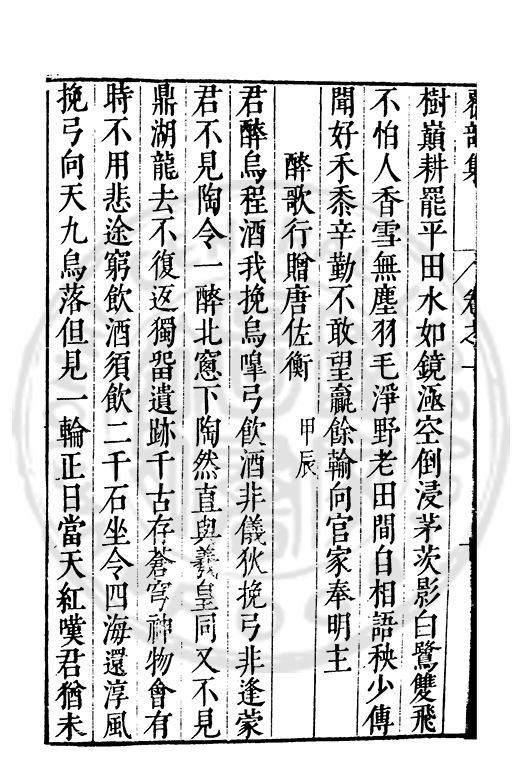 樹巔耕罷平田水如鏡極空倒浸茅茨影白鷺雙飛
不怕人香雪無塵羽毛淨野老田間自相語秧少傳
聞好禾黍辛勤不敢望贏餘輸向官家奉明主
醉歌行贈唐佐衡 甲辰
君醉烏程酒我挽烏嘷弓飲酒非儀狄挽弓非逢蒙
君不見陶令一醉北窻下陶然直與羲皇同又不見
鼎湖龍去不復返獨畱遺跡千古存蒼穹神物會有
時不用悲途窮飲酒須飲二千石坐令四海還淳風
挽弓向天九烏落但見一輪正日當天紅嘆君猶未